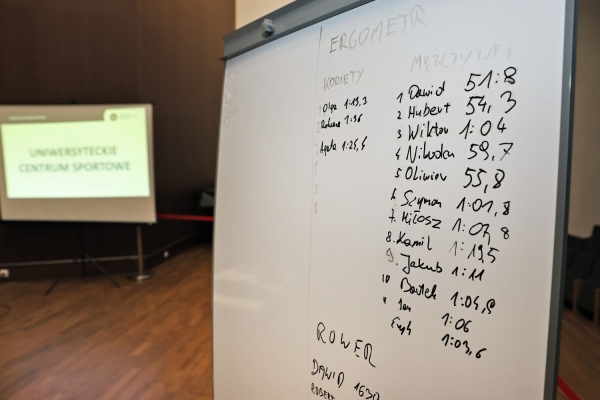 UNIWERSYTECKIE
CENTRUM SPORTOWE
ERGOMETR
KOBIETY
Olga 1:13,3
1:36
Agata 1:25,5
MĘŻCZYŹNI
1 Dawid 51:8
2 Hubert 54,3
3 Wiktor 1:04
4 Nikodem 59,7
5 Oliwier 55,8
6 Szymon 1:01,8
7. Miłosz 1:07,8
8. Kamil 1:19,5
9. Jakub 1:11
10 Bartek 1:04,9
11 Jan 1:06
1:03,6
ROWER
DAWID 1630
ROBERT